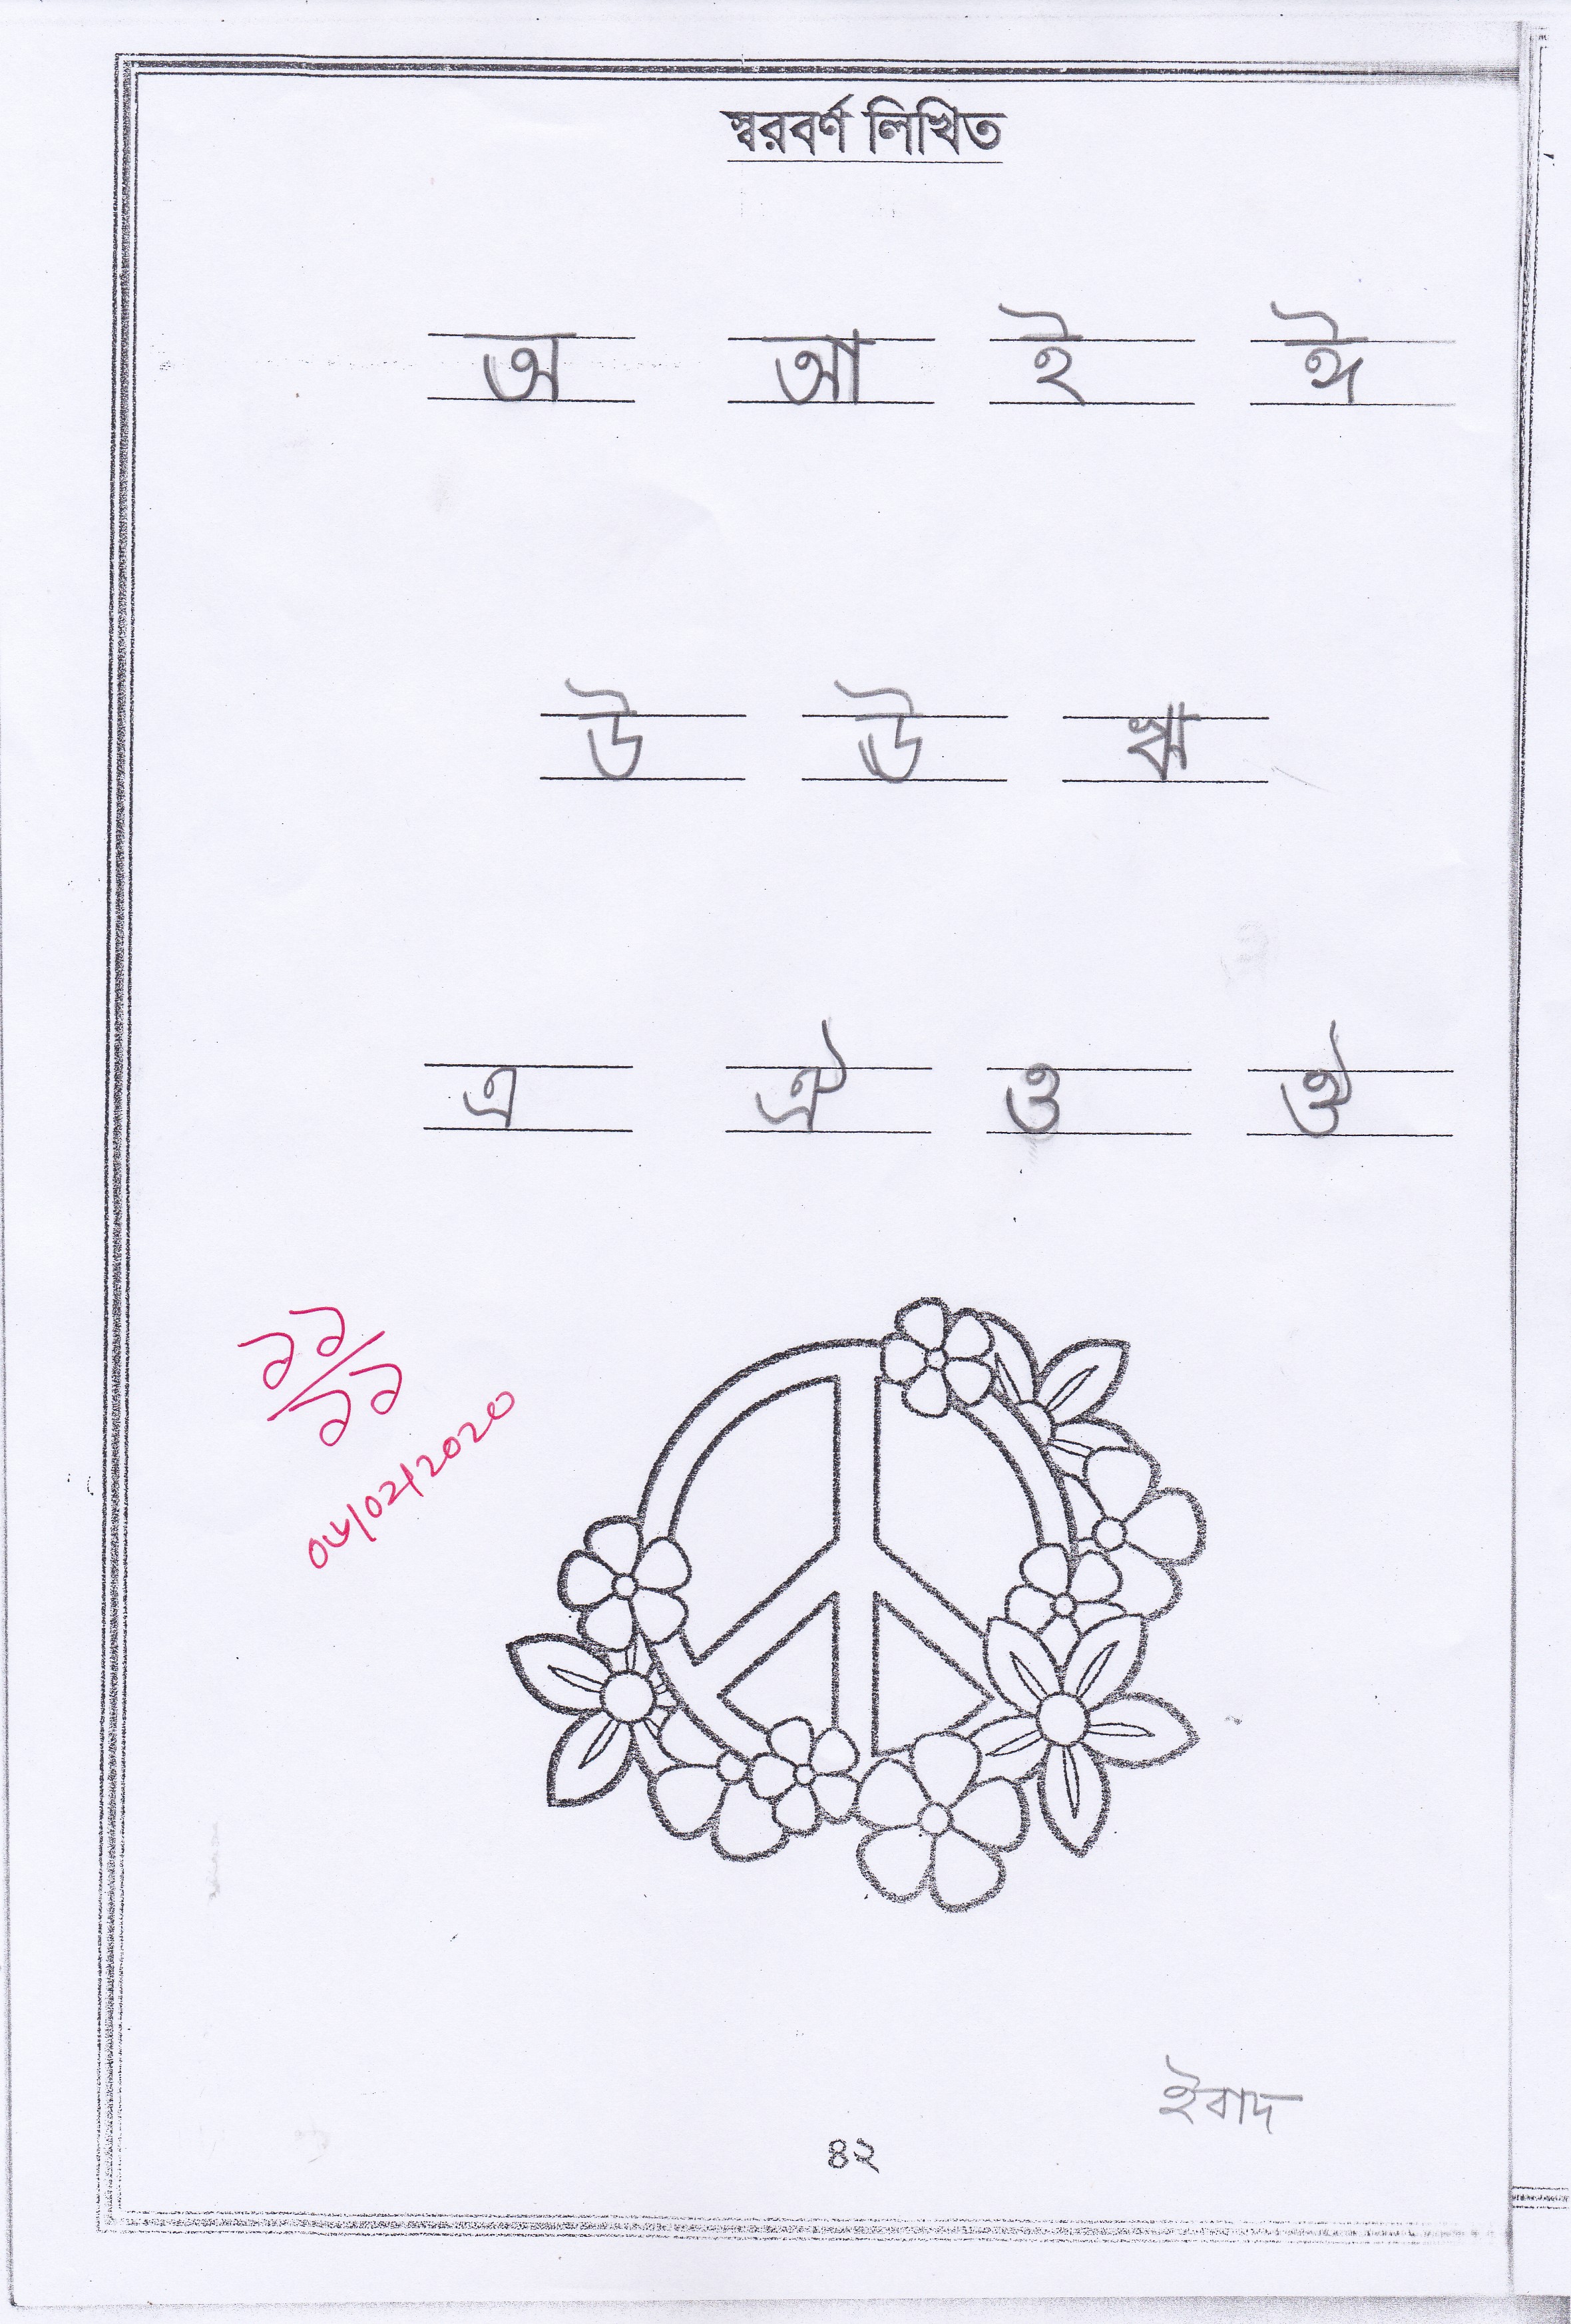 স্বরবর্ণ লিখিত
অ আ ই ঈ
উ ঊ ঋ
এ ঐ ও ঔ
১১
১১
০৬/০২/২০২০
ইবাদ
৪২